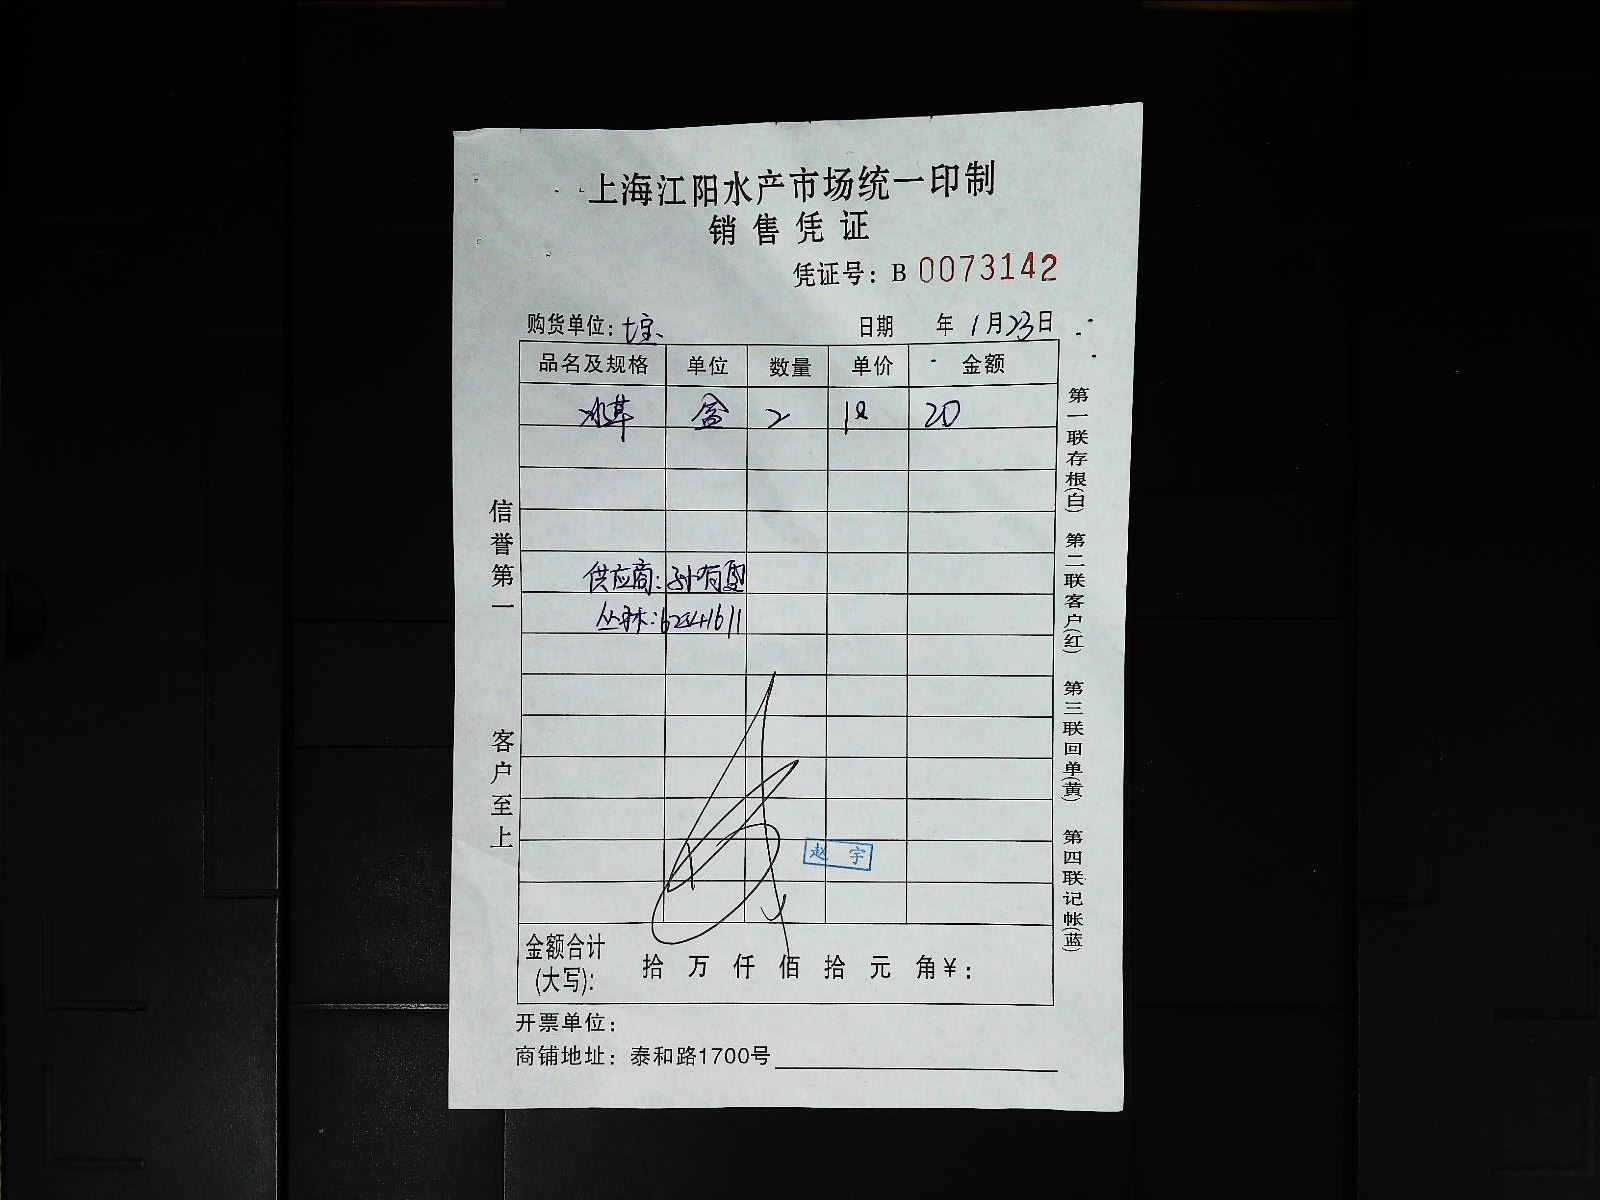 上海江阳水产市场统一印制
销售凭证
凭证号：B 0073142
购货单位： 日期 年 1月23日
品名及规格 单位 数量 单价 金额
水草 盒 2 10 20
供应商：孙有
丛林：62541611
赵宇
金额合计
(大写)： 拾 万 仟 佰 拾 元 角￥：
开票单位：
商铺地址：泰和路1700号
信誉第一 客户至上
第一联存根(白) 第二联客户(红) 第三联回单(黄) 第四联记帐(蓝)